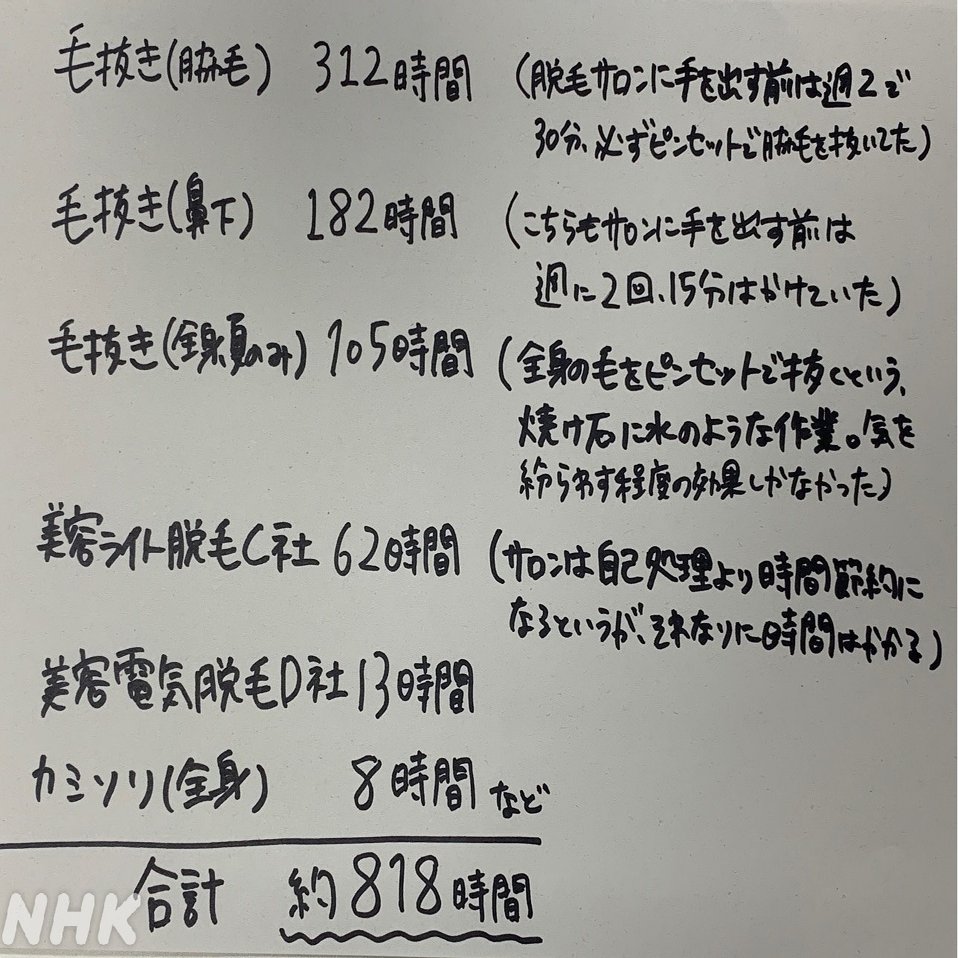 毛抜き(脇毛) 312時間 (脱毛サロンに手を出す前は週2で
30分、必ずピンセットで脇毛を抜いてた)
毛抜き(鼻下) 182時間 (こちらもサロンに手を出す前は
週に2回、15分はかけていた)
毛抜き(全身夏のみ) 105時間 (全身の毛をピンセットで抜くという、
焼け石に水のような作業。気を
紛らわす程度の効果しかなかった)
美容ライト脱毛C社 62時間 (サロンは自己処理より時間節約に
なるというが、それなりに時間はかかる)
美容電気脱毛D社 13時間
カミソリ(全身) 8時間 など
合計 約818時間
NHK